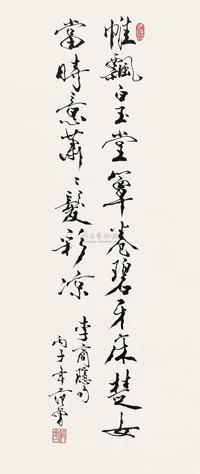 帷飄白玉堂簟卷碧牙床楚女
當時意蕭〻髮彩凉
李商隱句
丙子年范曾